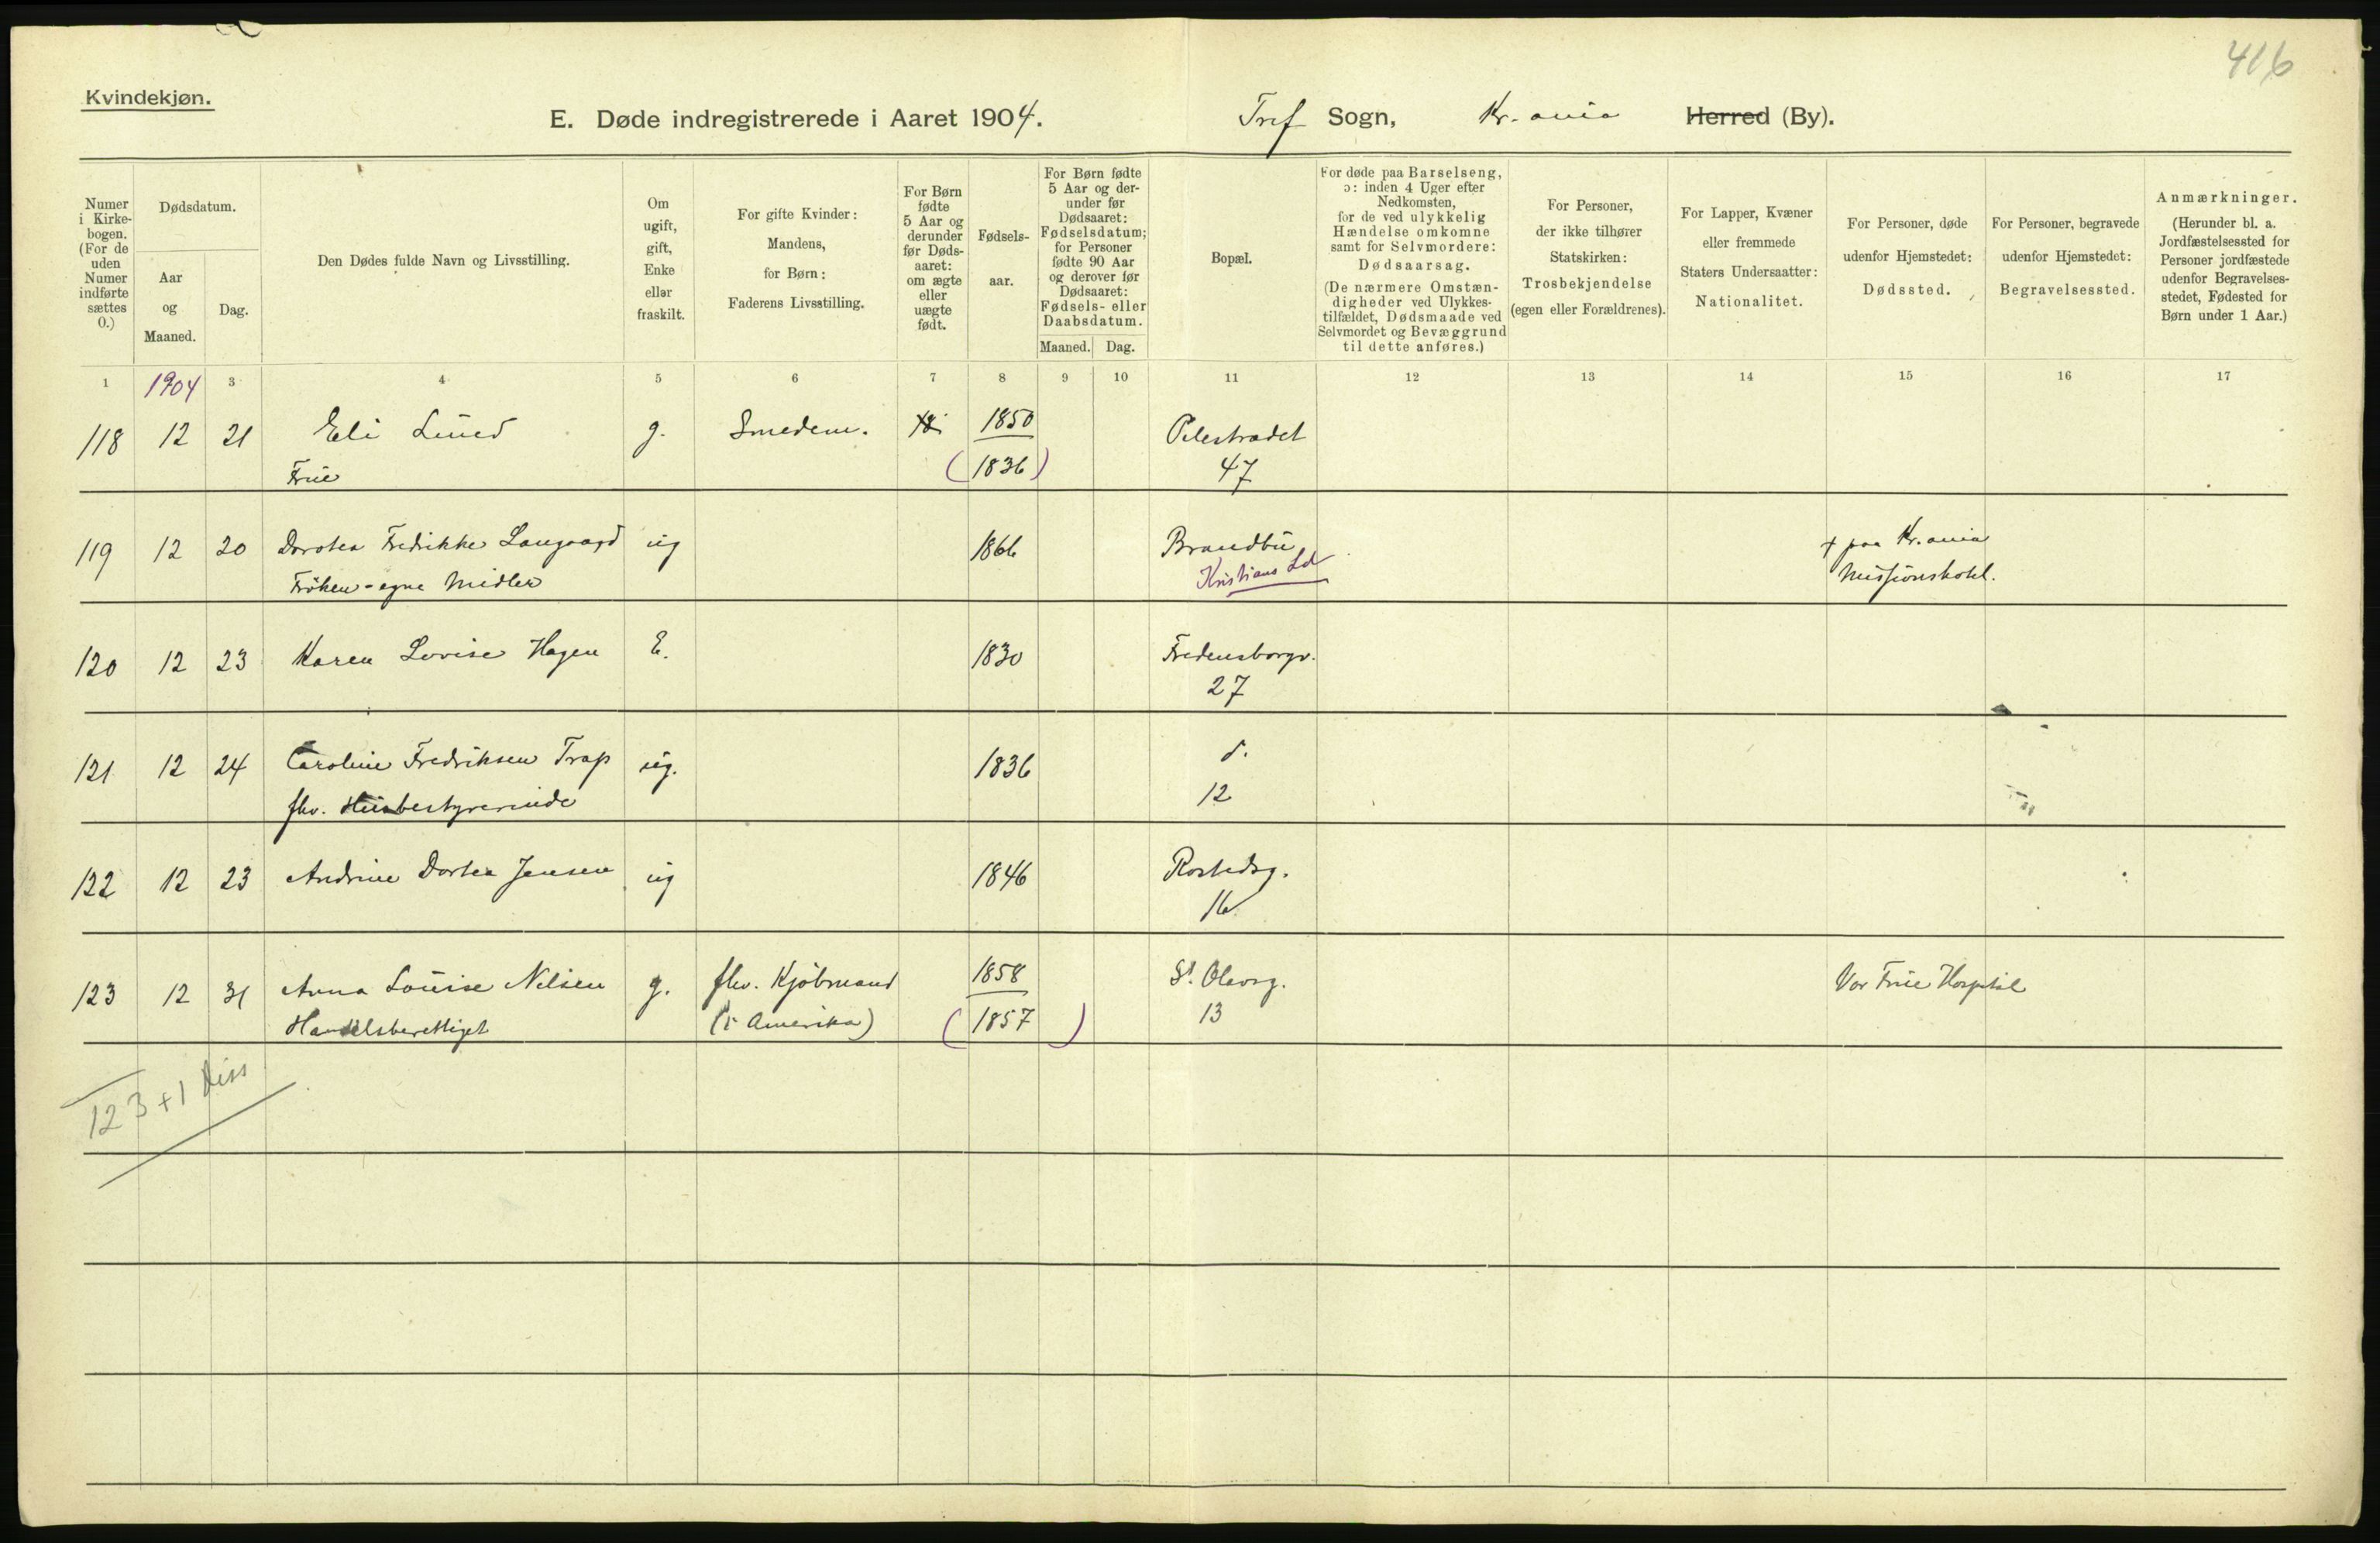 416
Kvindekjøn.
E. Døde indregistrerede i Aaret 1904. Tref Sogn, Kr.ania Herred (By).
Numer i Kirkebogen. (For de uden Numer indførte sættes 0.)
Dødsdatum.
Aar og Maaned.
Dag.
Den Dødes fulde Navn og Livsstilling.
Om ugift, gift, Enke eller fraskilt.
For gifte Kvinder: Mandens, for Børn: Faderens Livsstilling.
For Børn fødte 5 Aar og derunder før Dødsaaret: om ægte eller uægte født.
Fødselsaar.
For Børn fødte 5 Aar og derunder før Dødsaaret: Fødselsdatum; for Personer fødte 90 Aar og derover før Dødsaaret: Fødsels- eller Daabsdatum.
Maaned. Dag.
Bopæl.
For døde paa Barselseng, ɔ: inden 4 Uger efter Nedkomsten, for de ved ulykkelig Hændelse omkomne samt for Selvmordere: Dødsaarsag. (De nærmere Omstændigheder ved Ulykkestilfældet, Dødsmaade ved Selvmordet og Bevæggrund til dette anføres.)
For Personer, der ikke tilhører Statskirken: Trosbekjendelse (egen eller Forældrenes).
For Lapper, Kvæner eller fremmede Staters Undersaatter: Nationalitet.
For Personer, døde udenfor Hjemstedet: Dødssted.
For Personer, begravede udenfor Hjemstedet: Begravelsessted.
Anmærkninger. (Herunder bl. a. Jordfæstelsessted for Personer jordfæstede udenfor Begravelsesstedet, Fødested for Børn under 1 Aar.)
1 1904 3 4 5 6 7 8 9 10 11 12 13 14 15 16 17
118 12 21 Eli Lund g. Smedem. 1850 Pilestrædet
Frue (1836) 47
119 12 20 Dorotea Fredrikke Langaard ug 1866 Brandbu + paa Kr.ania
Frøken - egne Midler Kristians Ld Missionshotel.
120 12 23 Karen Lovise Hagen E. 1830 Fredensborgv.
27
121 12 24 Caroline Fredriksen Trap ug. 1836 d.
fhv. Husbestyrerinde 12
122 12 23 Andrine Dortea Jensen ug 1846 Rostedsg.
16
123 12 31 Anna Louise Nilsen g. fhv. Kjøbmand 1858 St. Olavsg. Vor Frue Hospital
Handelsberettiget (i Amerika) (1857) 13
123 + 1 Diss